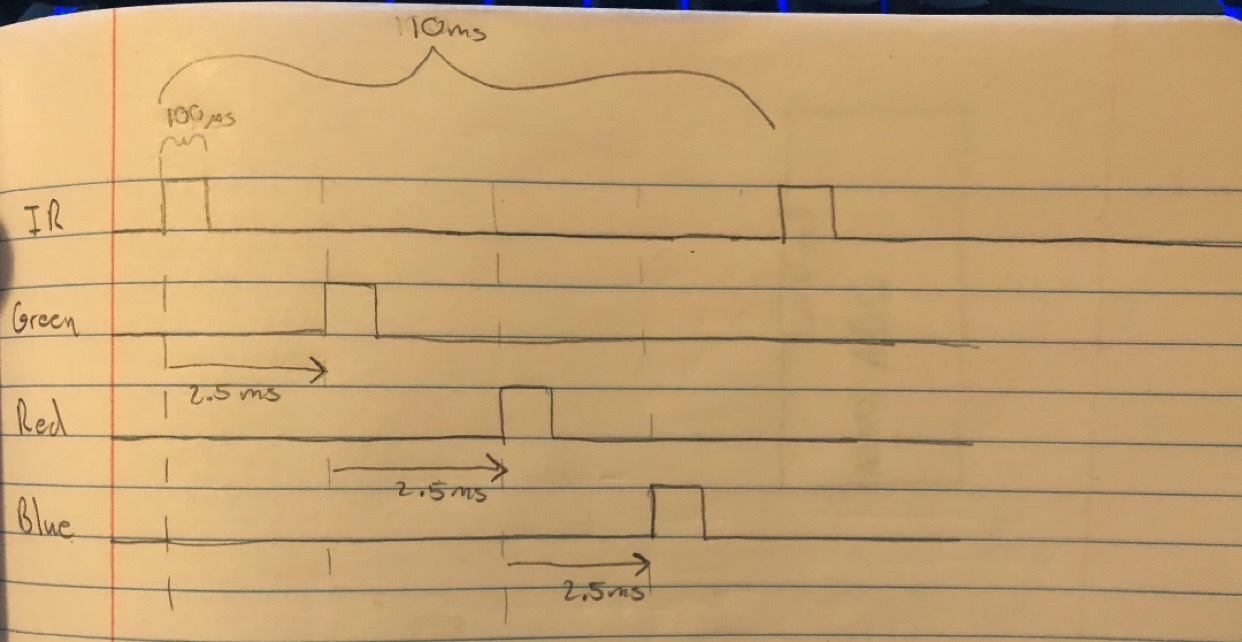 10ms
100µs
IR
Green
2.5ms
Red
2.5ms
Blue
2.5ms